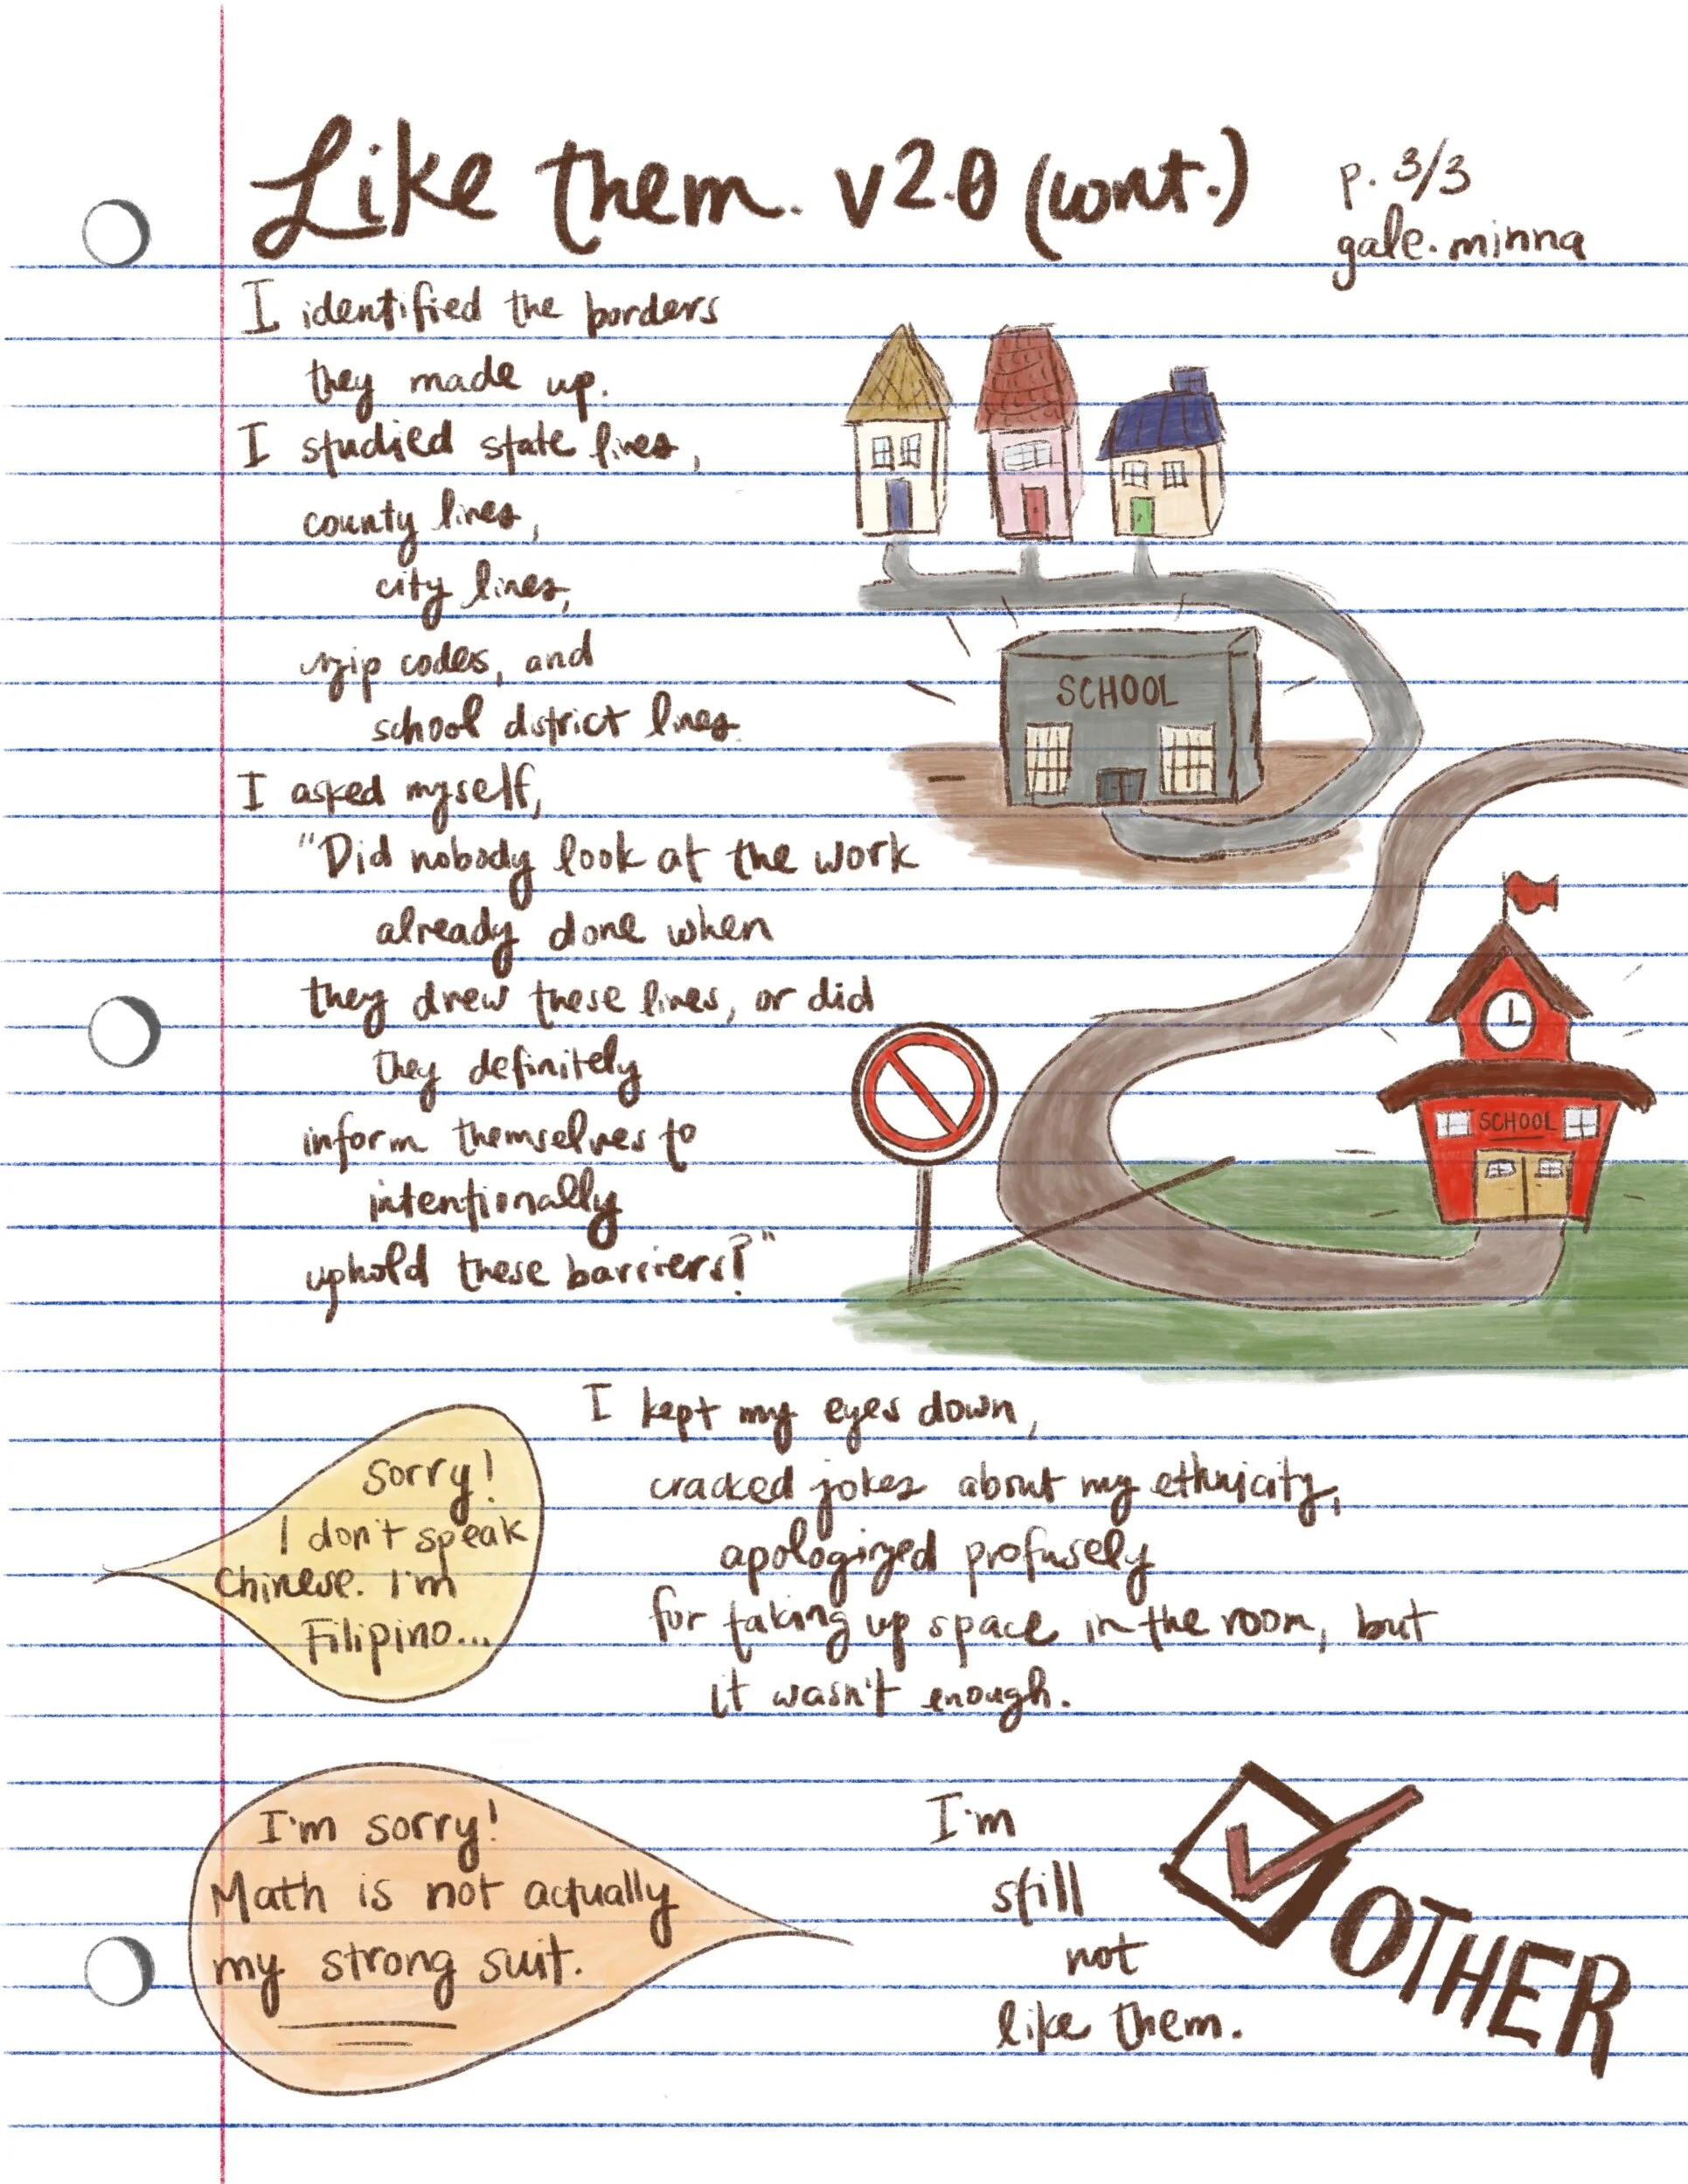 Like them. v2.0 (cont.)
p. 3/3
gale.minna
I identified the borders
they made up.
I studied state lines,
county lines,
city lines,
zip codes, and
school district lines.
I asked myself,
"Did nobody look at the work
already done when
they drew these lines, or did
they definitely
inform themselves to
intentionally
uphold these barriers?"
SCHOOL
SCHOOL
I kept my eyes down,
cracked jokes about my ethnicity,
apologized profusely
for taking up space in the room, but
it wasn't enough.
Sorry!
I don't speak
Chinese. I'm
Filipino...
I'm sorry!
Math is not actually
my strong suit.
I'm
still
not
like them.
OTHER